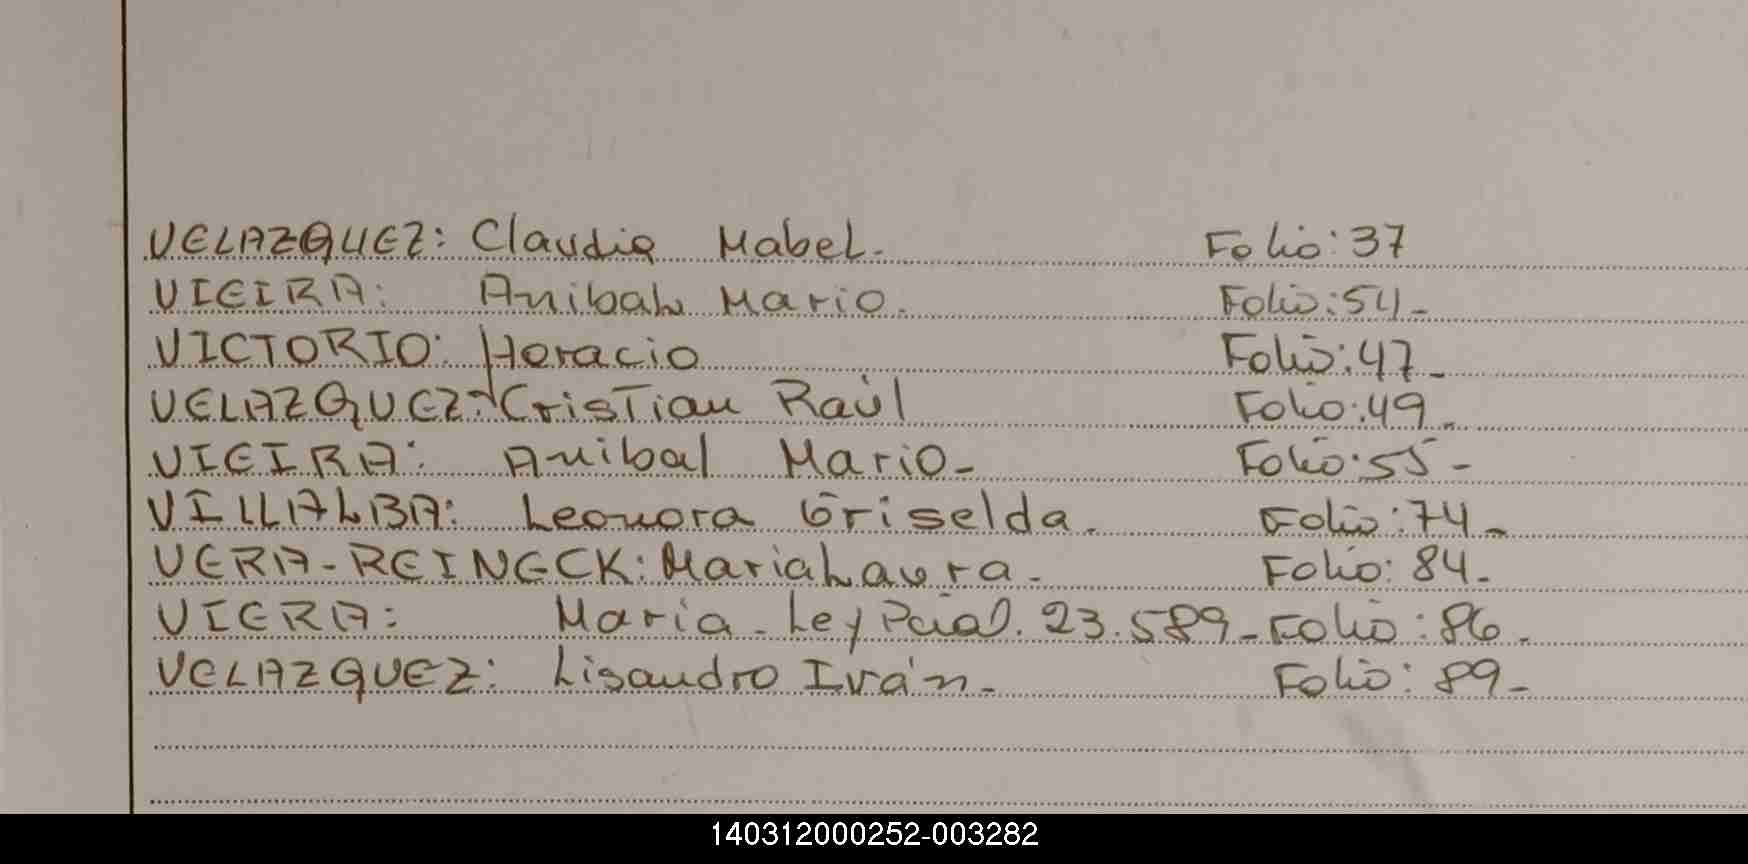 VELAZQUEZ: Claudia Mabel. Folio: 37
VIEIRA: Anibal Mario. Folio: 54-
VICTORIO: Horacio Folio: 47-
VELAZQUEZ: Cristian Raúl Folio: 49-
VIEIRA: Anibal Mario- Folio: 55-
VILLALBA: Leonora Griselda. Folio: 74-
VERA-REINECK: Maria Laura. Folio: 84.
VIERA: Maria. Ley Pcial. 23.589- Folio: 86.
VELAZQUEZ: Lisandro Iván- Folio: 89-
140312000252-003282